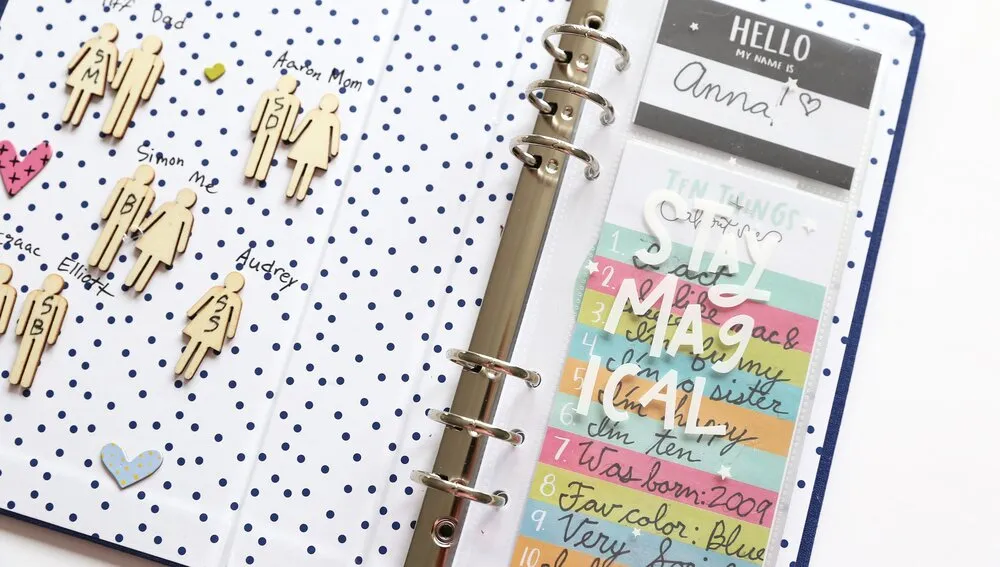 Dad
S
M
Aaron Mom
S
D
Simon
Me
B
Elliott
S
B
Audrey
S
S
HELLO
MY NAME IS
Anna!
TEN THINGS
STAY
MAG
ICAL
1. I act
2. I like
3. I'm funny
4. I'm a sister
5. I'm happy
6 I'm ten
7. Was born: 2009
8 Fav color: Blue
9. Very
10.